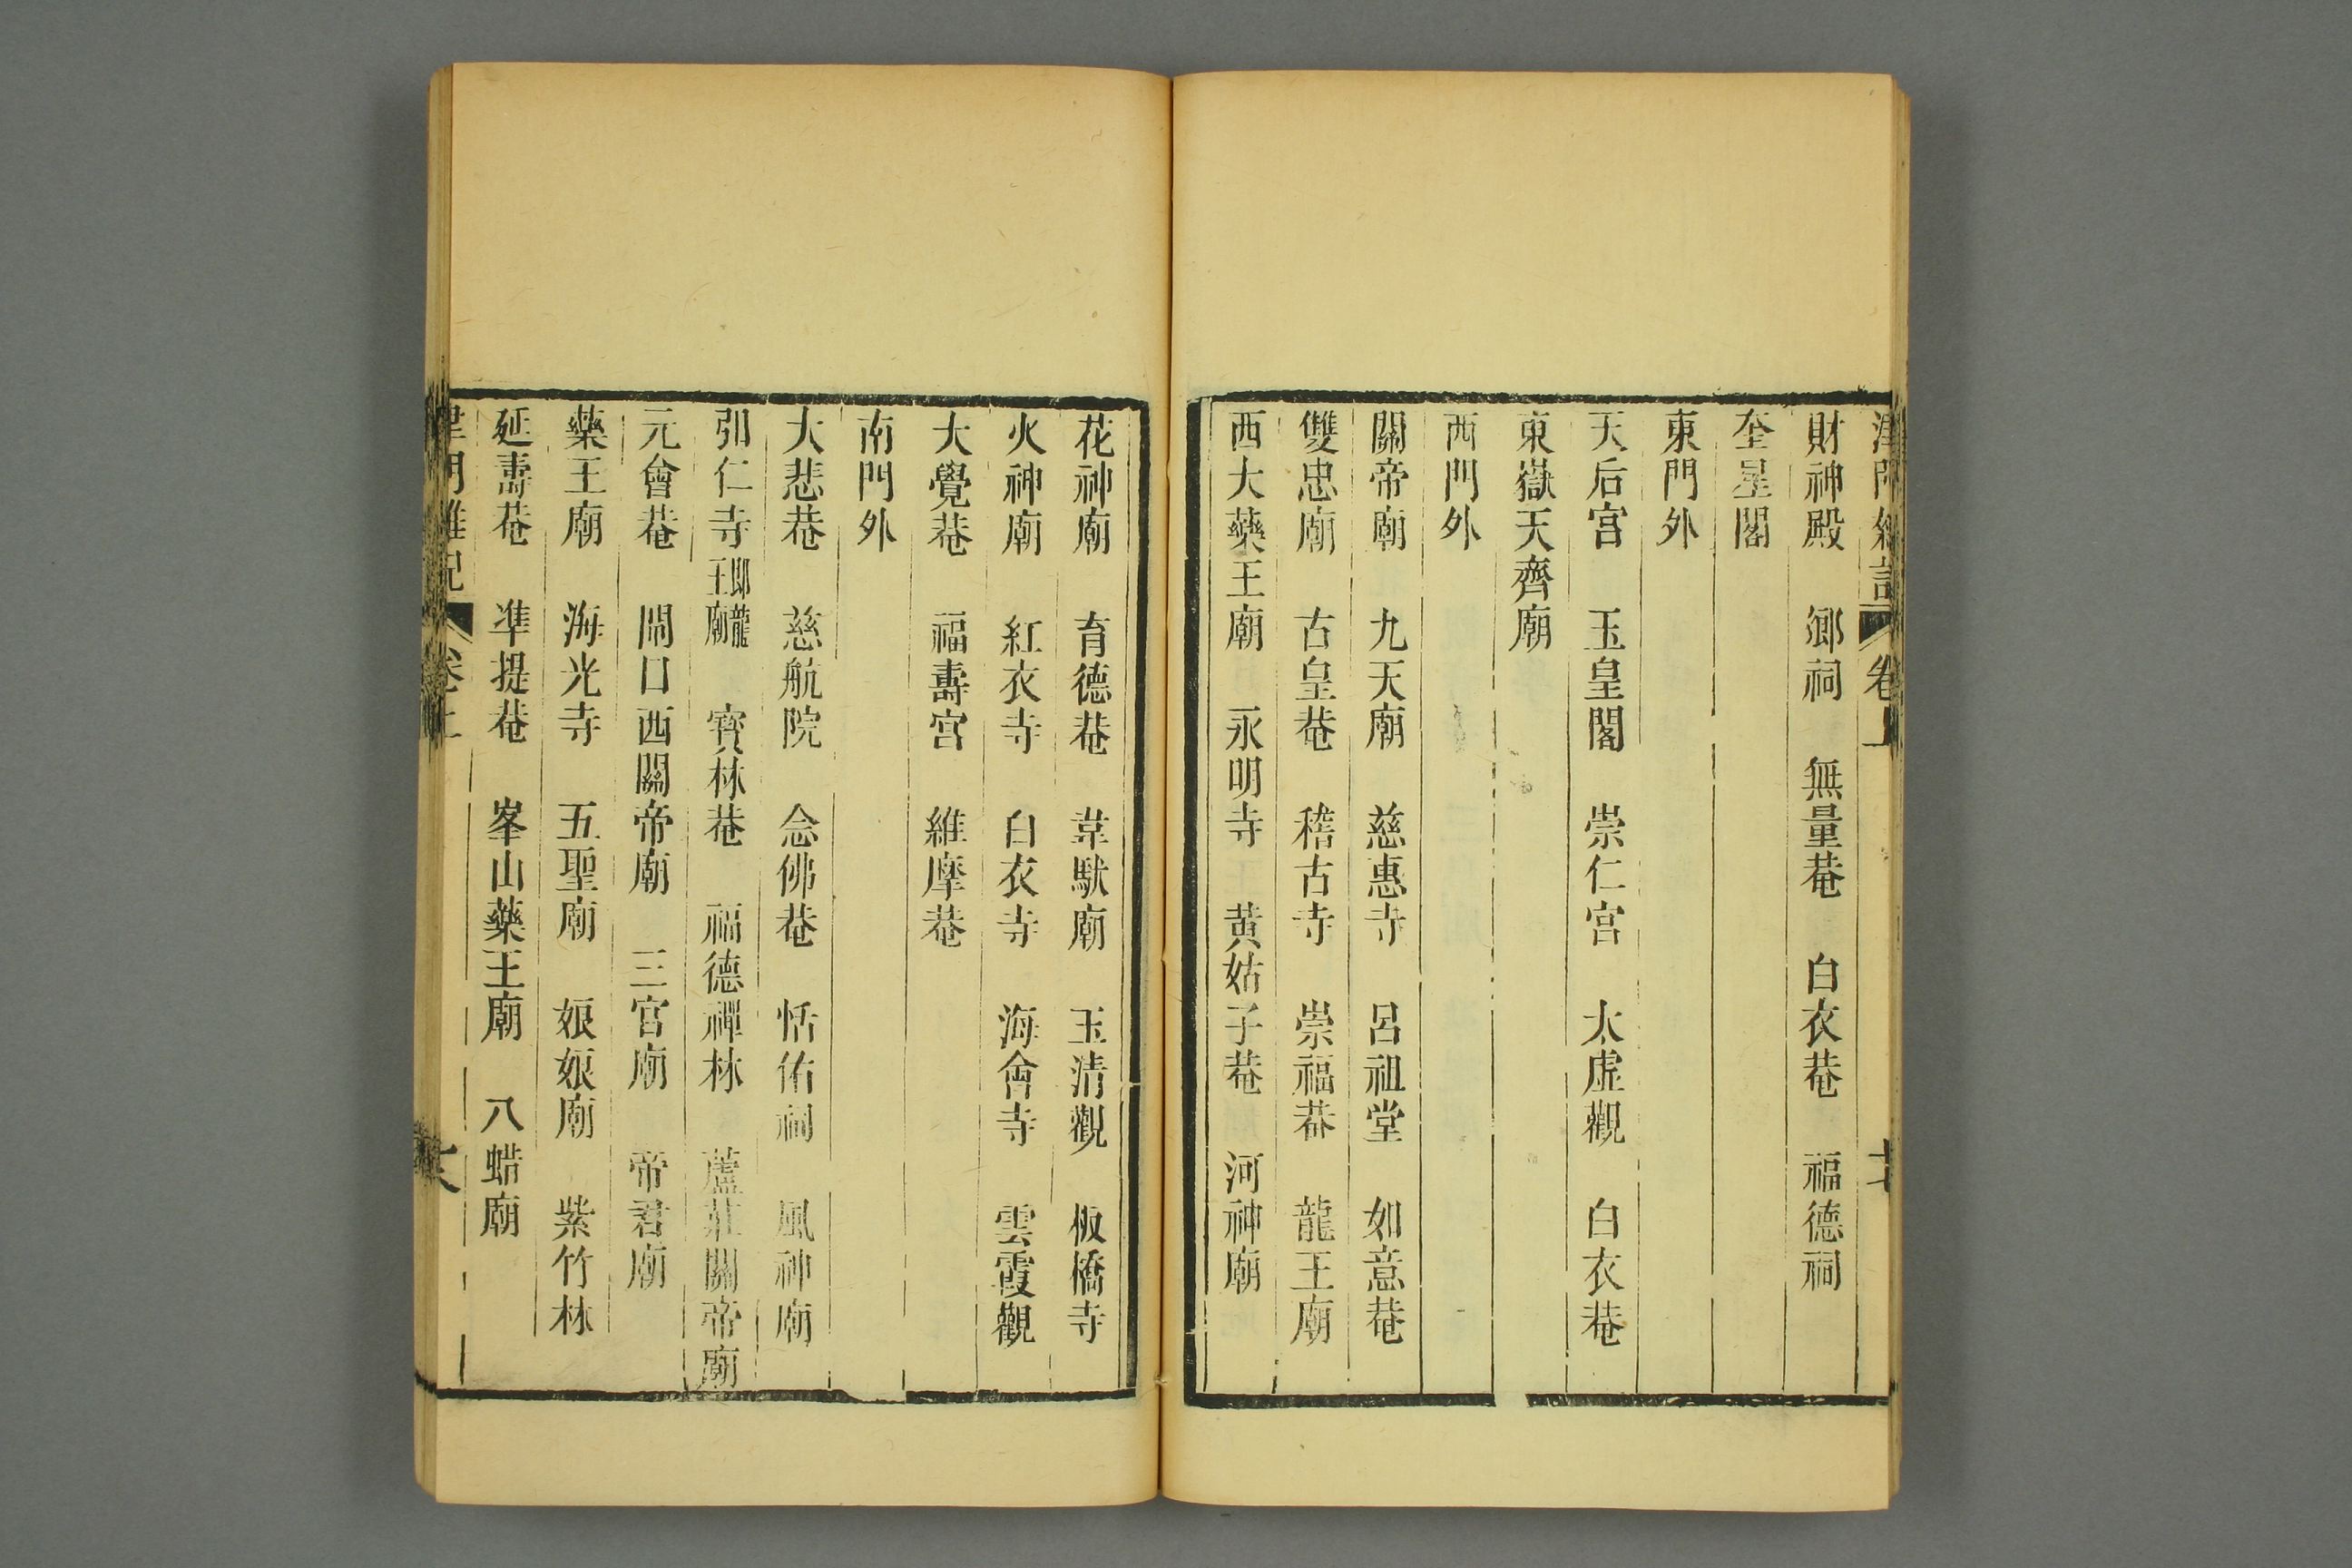 津門雜記 卷上 十七
財神殿 鄉祠 無量菴 白衣菴 福德祠
奎星閣
東門外
天后宮 玉皇閣 崇仁宮 太虛觀 白衣菴
東嶽天齊廟
西門外
關帝廟 九天廟 慈惠寺 呂祖堂 如意菴
雙忠廟 古皇菴 稽古寺 崇福菴 龍王廟
西大藥王廟 永明寺 黃姑子菴 河神廟
花神廟 育德菴 韋馱廟 玉清觀 板橋寺
火神廟 紅衣寺 白衣寺 海會寺 雲霞觀
大覺菴 福壽宮 維摩菴
南門外
大悲菴 慈航院 念佛菴 恬佑祠 風神廟
引仁寺即龍王廟 寶林菴 福德禪林 蘆莊關帝廟
元會菴 閘口西關帝廟 三官廟 帝君廟
藥王廟 海光寺 五聖廟 娘娘廟 紫竹林
延壽菴 準提菴 峯山藥王廟 八蜡廟
津門雜記 卷上